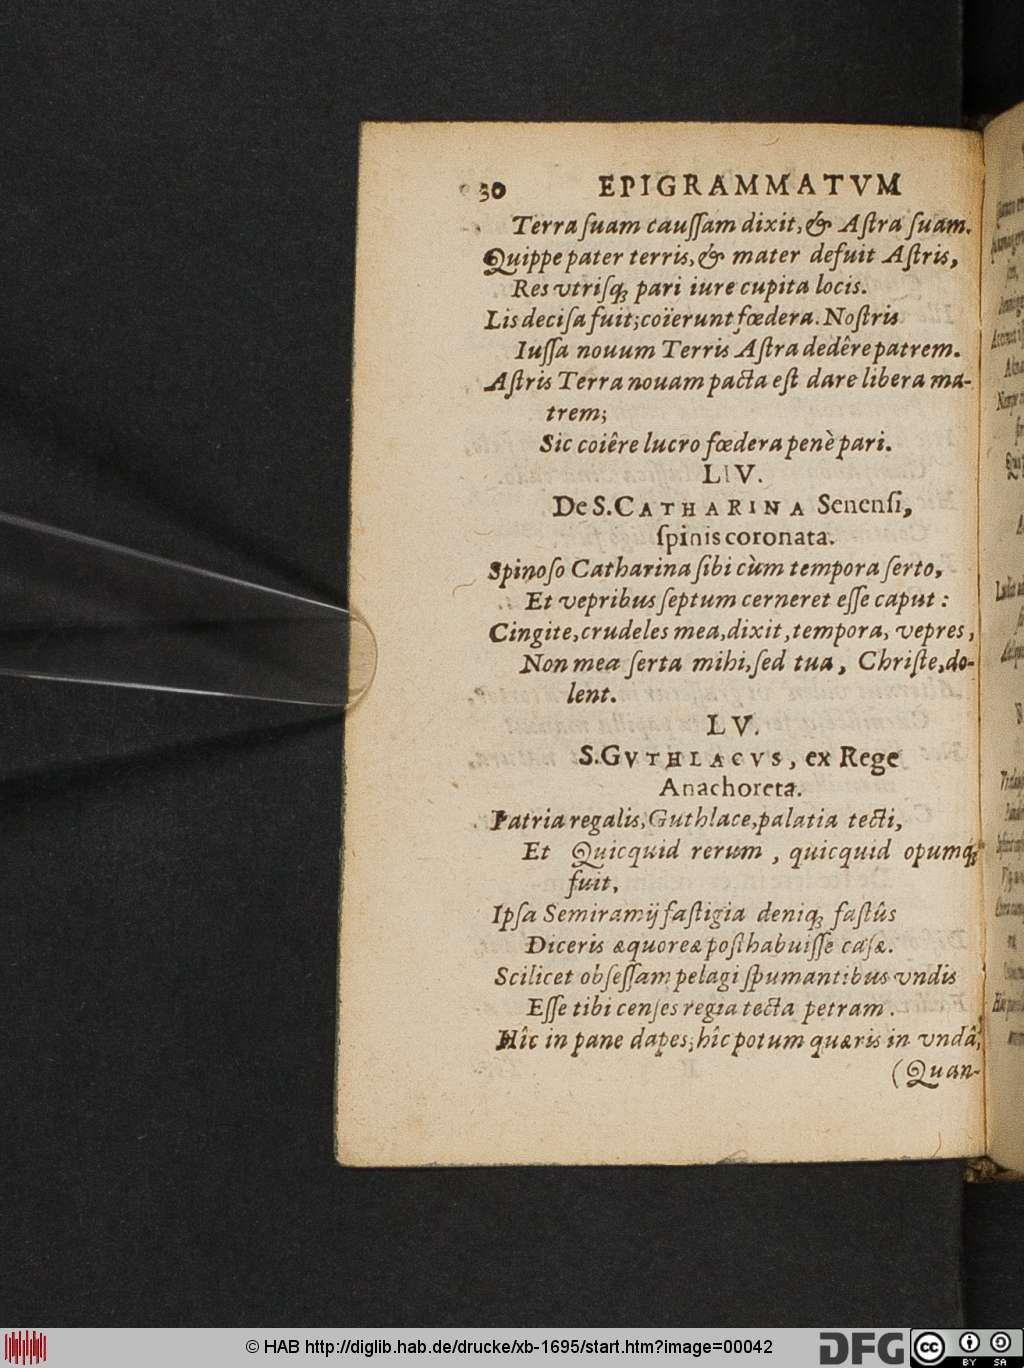 30 EPIGRAMMATVM
Terra ſuam cauſſam dixit, & Aſtra ſuam.
Quippe pater terris, & mater defuit Aſtris,
Res vtriſq; pari iure cupita locis.
Lis deciſa fuit; coïerunt fœdera. Noſtris
Iuſſa nouum Terris Aſtra dedêre patrem.
Aſtris Terra nouam pacta eſt dare libera ma-
trem;
Sic coiêre lucro fœdera penè pari.
LIV.
De S. CATHARINA Senenſi,
ſpinis coronata.
Spinoſo Catharina ſibi cùm tempora ſerto,
Et vepribus ſeptum cerneret eſſe caput:
Cingite, crudeles mea, dixit, tempora, vepres,
Non mea ſerta mihi, ſed tua, Chriſte, do-
lent.
LV.
S. GVTHLACVS, ex Rege
Anachoreta.
Patria regalis, Guthlace, palatia tecti,
Et Quicquid rerum, quicquid opumq́;
fuit,
Ipſa Semiramij faſtigia deniq; faſtûs
Diceris æquoreæ poſthabuiſſe caſæ.
Scilicet obſeſſam pelagi ſpumantibus vndis
Eſſe tibi cenſes regia tecta petram.
Hîc in pane dapes; hîc potum quæris in vndâ;
(Quan-
© HAB http://diglib.hab.de/drucke/xb-1695/start.htm?image=00042
DFG
cc BY SA